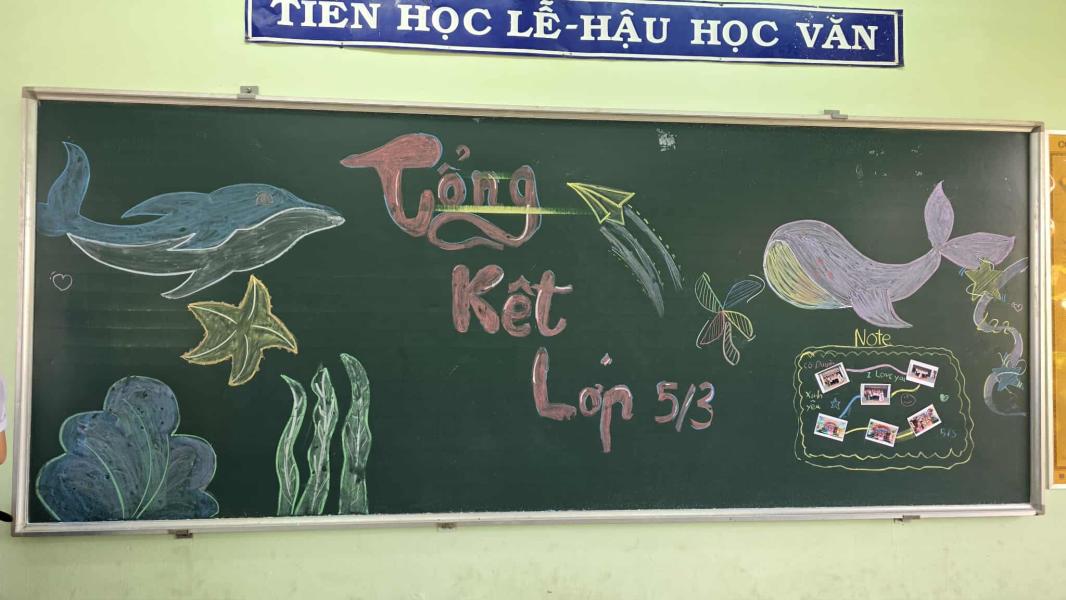 TIÊN HỌC LỄ-HẬU HỌC VĂN
Tổng
Kết
Lớp 5/3
Note
cô Duyên
I Love you
xinh
yêu
5/3